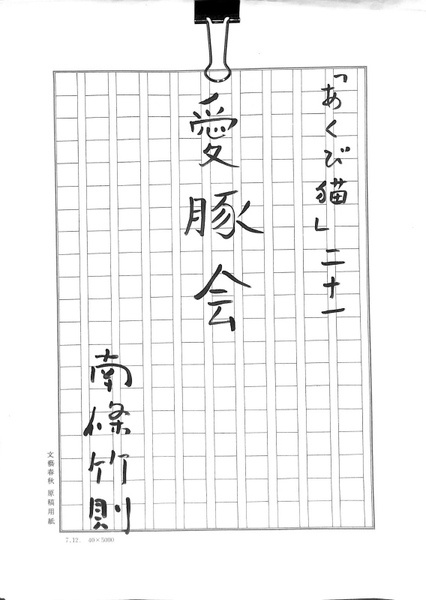 「あくび猫」二十一
愛豚会
南條竹則
文藝春秋 原稿用紙
7.12. 40×5000